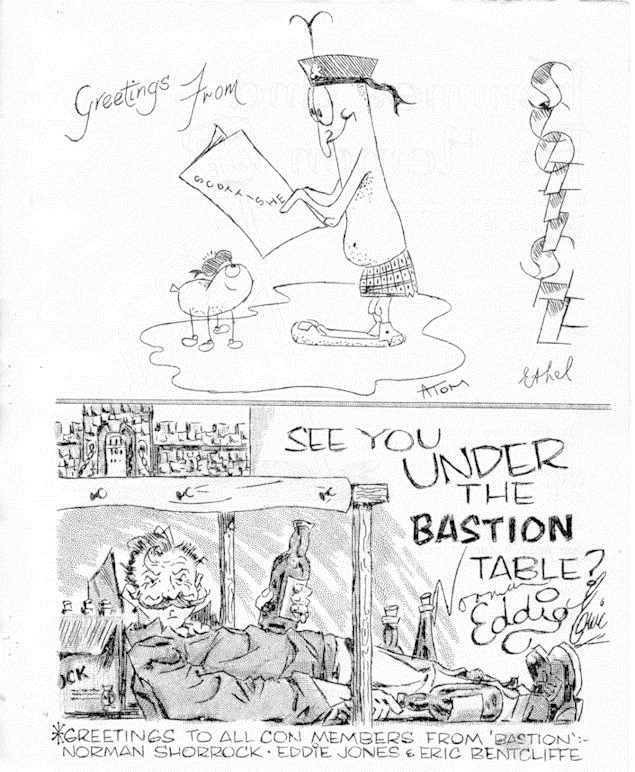 Greetings From
SCOTTISHE
SCOTTISHE
ATOM
Ethel
SEE YOU
UNDER
THE
BASTION
TABLE?
Norman
Eddie
OCK
*GREETINGS TO ALL CON MEMBERS FROM 'BASTION':-
NORMAN SHORROCK · EDDIE JONES & ERIC BENTCLIFFE